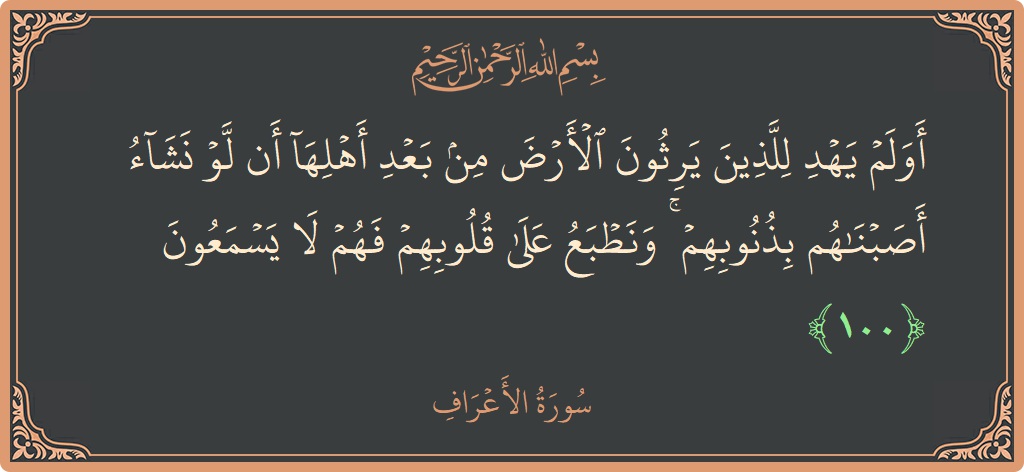 بِسْمِ اللَّهِ الرَّحْمَٰنِ الرَّحِيمِ
أَوَلَمۡ يَهۡدِ لِلَّذِينَ يَرِثُونَ ٱلۡأَرۡضَ مِنۢ بَعۡدِ أَهۡلِهَآ أَن لَّوۡ نَشَآءُ
أَصَبۡنَٰهُم بِذُنُوبِهِمۡۚ وَنَطۡبَعُ عَلَىٰ قُلُوبِهِمۡ فَهُمۡ لَا يَسۡمَعُونَ
﴿١٠٠﴾
سُورَةُ الأَعۡرَافِ